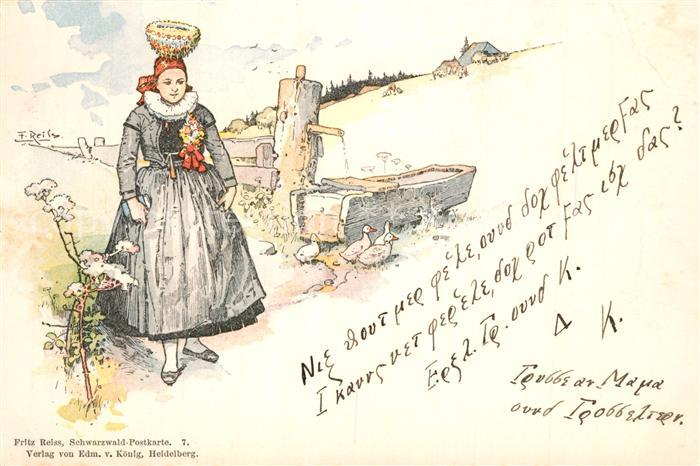 F. Reiss
Νιξ θουτ μερ φέλε, ουνδ δοχ φέλτ μερ Fας
Ι καννς νετ φερζέλε, δοχ ροτ Fας ισχ δας?
Ερζλ. Γρ. ουνδ Κ.
Δ Κ.
Γρυσσε αν Μαμα
ουνδ Γροσσελτερν.
Fritz Reiss, Schwarzwald-Postkarte. 7.
Verlag von Edm. v. König, Heidelberg.